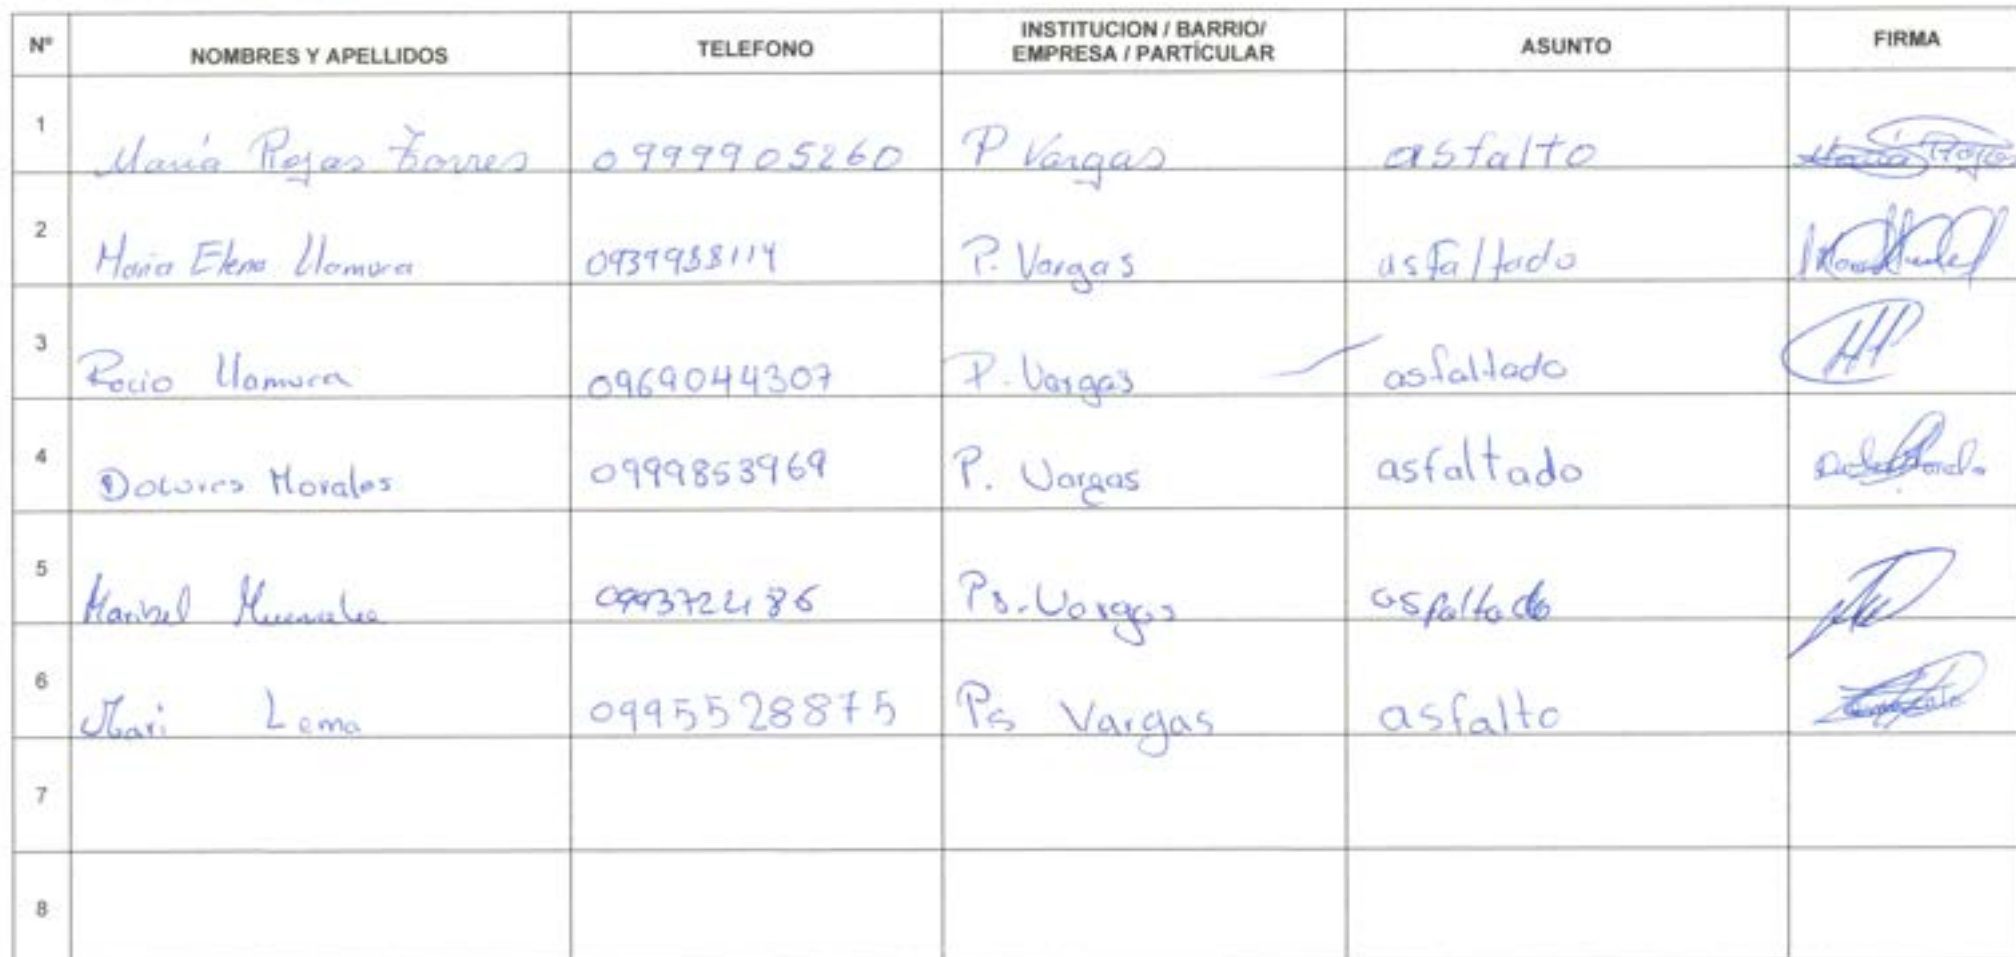 Nº NOMBRES Y APELLIDOS TELEFONO INSTITUCION / BARRIO/ EMPRESA / PARTÍCULAR ASUNTO FIRMA
1 María Rojas Torres 0999905260 P Vargas asfalto María Rojas
2 María Elena Llamuca 0939988114 P. Vargas asfaltado
3 Rocio Llamuca 0969044307 P. Vargas asfaltado
4 Dolores Morales 0999853969 P. Vargas asfaltado
5 Maribel Ps. Vargas asfaltado
6 Mari Lema 0995528875 Ps Vargas asfalto
7
8